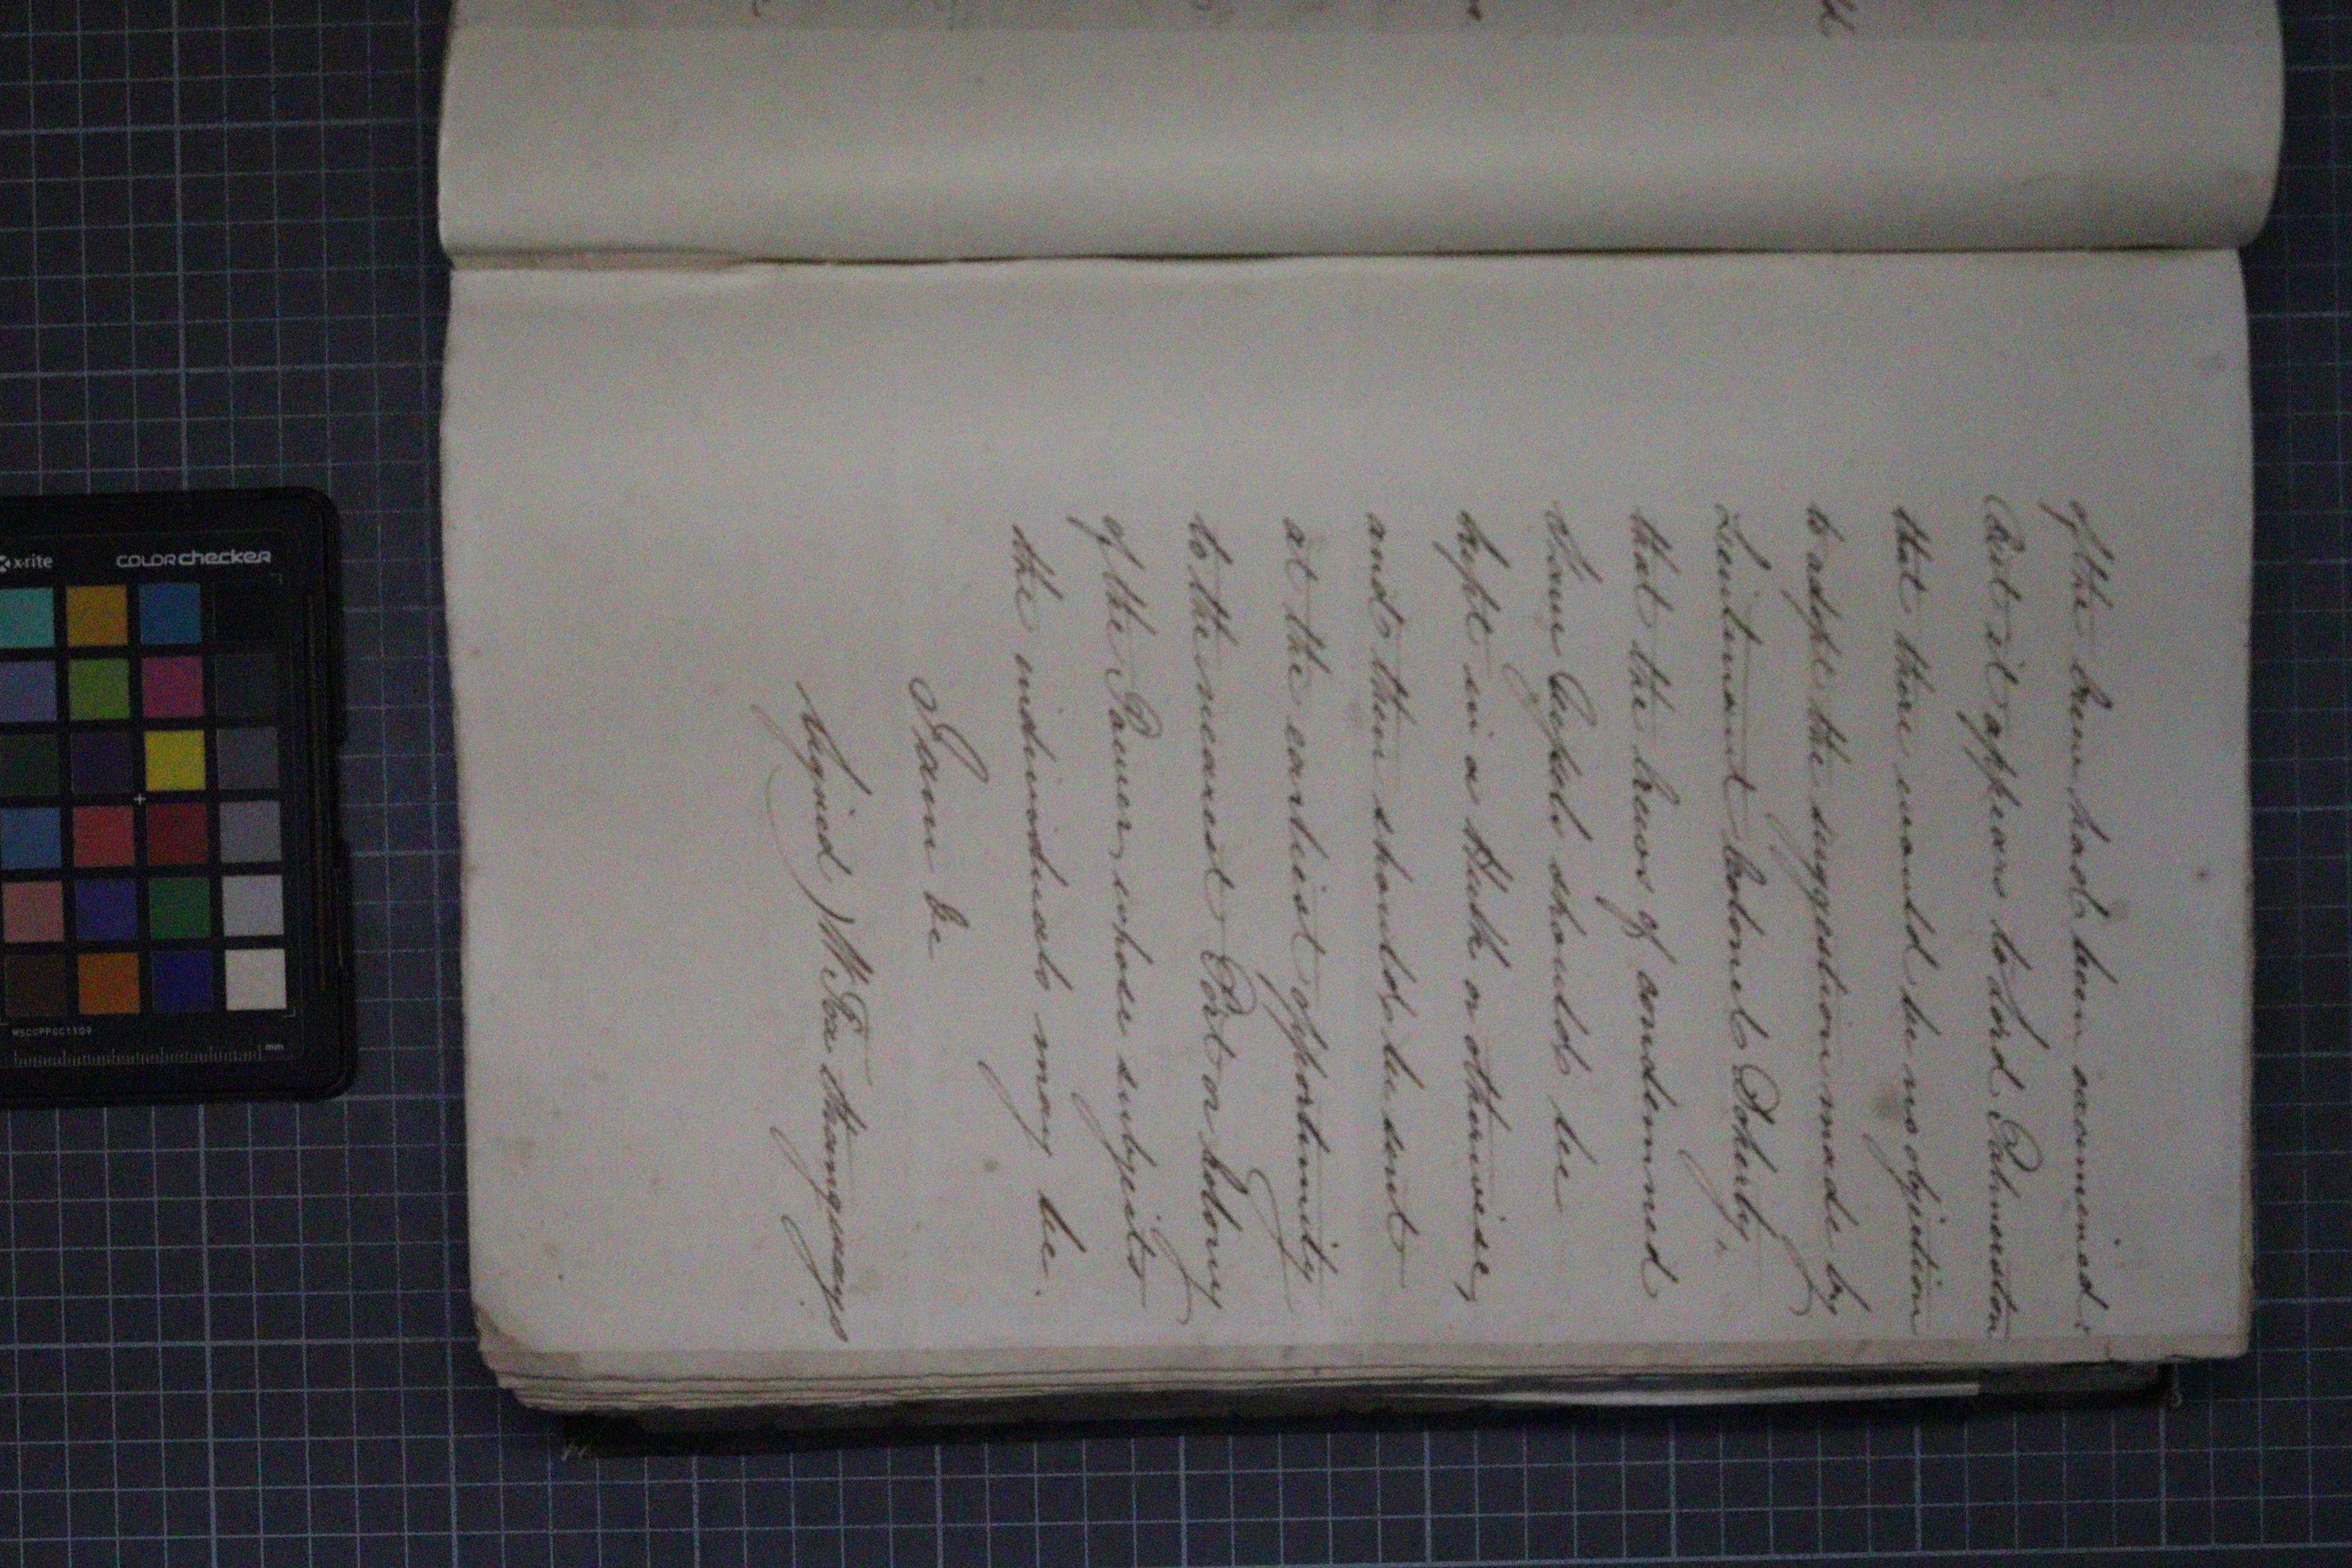 of the Crew had been occasioned.
But it appears to Lord Palmerston
that there would be no objection
to adopt the suggestion made by
Lieutenant Colonel Doherty,
that the Crews of condemned
Slave Vessels should be
kept in a Hulk or otherwise,
and then should be sent
at the earliest opportunity
to the nearest Port or Colony
of the Power, whose subjects
the individuals may be.
I am &c
(signed) W Fox Strangways
x-rite
colorchecker
MSCCPPCC1109
mm